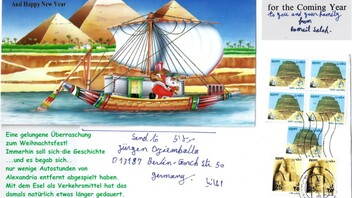 And Happy New Year
for the Coming Year
to you and your family
from
Eine gelungene Überraschung
zum Weihnachtsfest!
Immerhin soll sich die Geschichte
...und es begab sich..
nur wenige Autostunden von
Alexandria entfernt abgespielt haben.
Mit dem Esel als Verkehrsmittel hat das
damals natürlich etwas länger gedauert.
Send to
Jürgen Dziemballa
Berlin
50
germany.